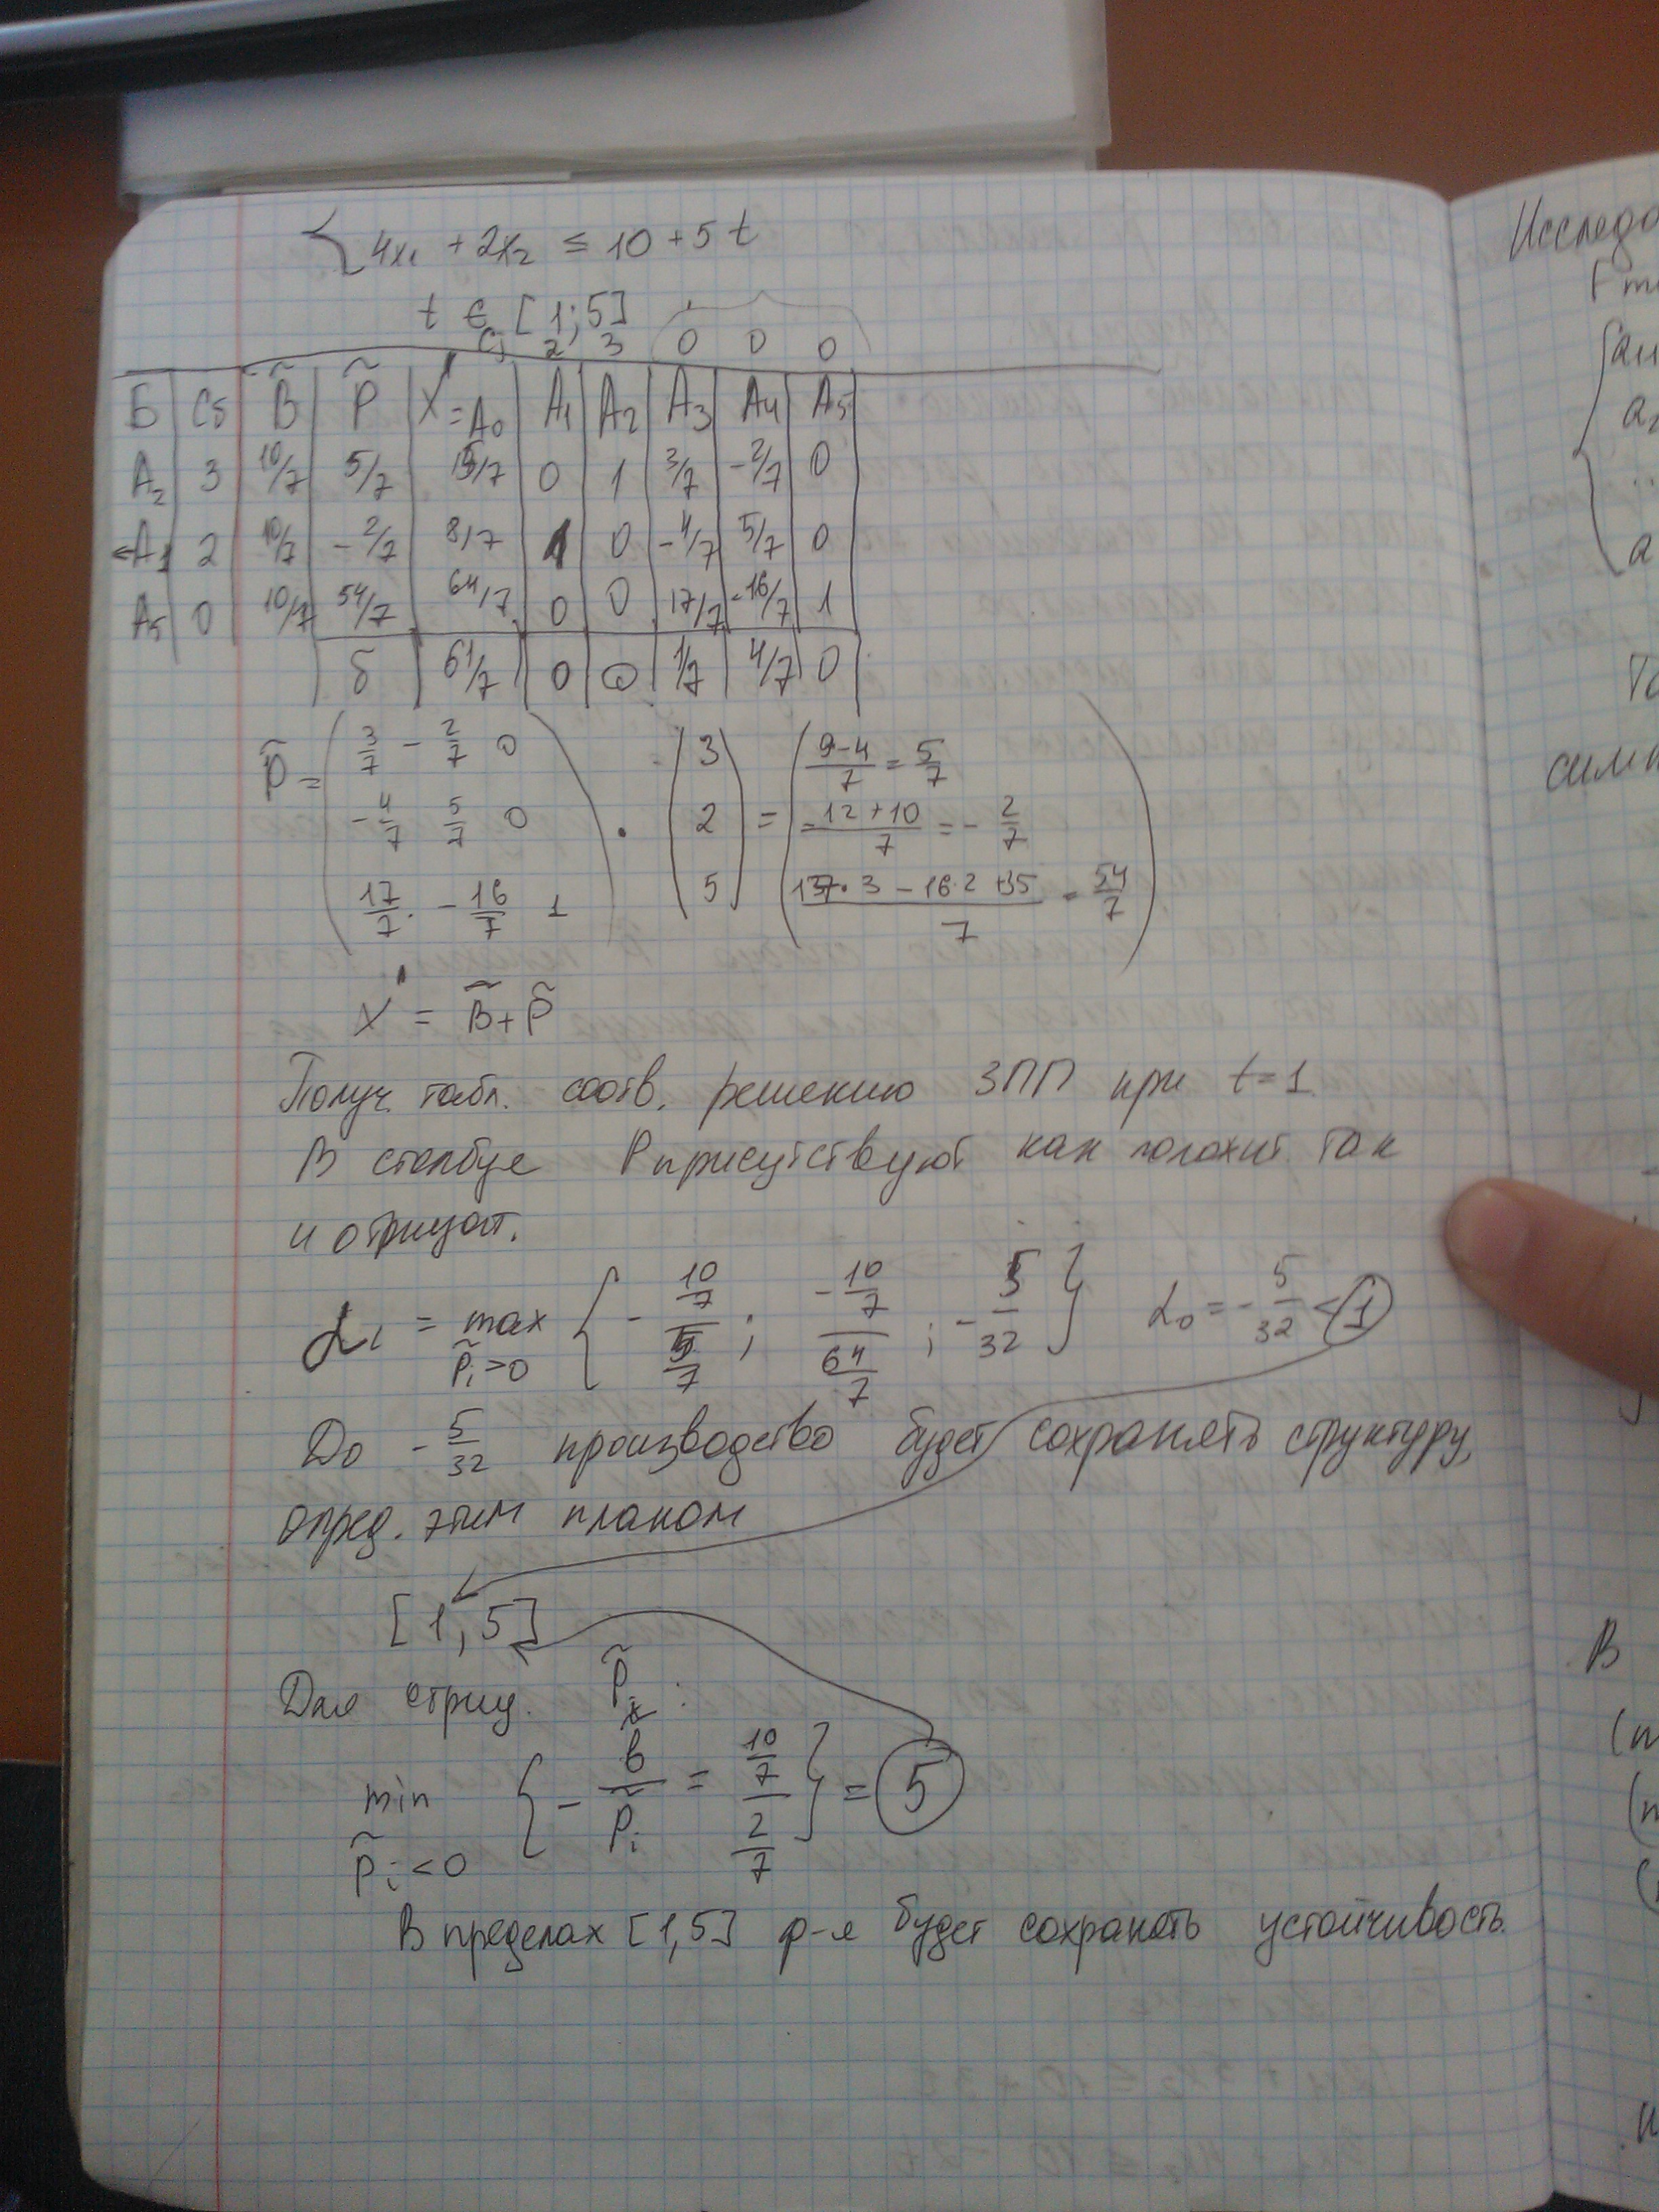 4x₁ + 2x₂ ≤ 10 + 5t
t ∈ [1; 5]
Cj 2 3 0 0 0
Б Cб B̃ P̃ X' = A₀ A₁ A₂ A₃ A₄ A₅
A₂ 3 10/7 5/7 15/7 0 1 3/7 -2/7 0
←A₁ 2 10/7 -2/7 8/7 1 0 -4/7 5/7 0
A₅ 0 10/7 54/7 64/7 0 0 17/7 -16/7 1
δ 61/7 0 0 1/7 4/7 0
P̃ = ( 3/7 - 2/7 0 ) ( 3 ) ( (9-4)/7 = 5/7 )
( -4/7 5/7 0 ) · ( 2 ) = ( (-12+10)/7 = -2/7 )
( 17/7 -16/7 1 ) ( 5 ) ( (17·3 - 16·2 + 35)/7 = 54/7 )
X' = B̃ + P̃
Получ. табл. соотв. решению ЗПП при t=1
В столбце P присутствуют как положит. так
и отрицат.
= max P̃i>0 { - (10/7)/(5/7) ; (-10/7)/(64/7) ; - 5/32 } α₀ = - 5/32 < 1
До - 5/32 производство будет сохранять структуру,
опред. этим планом
[1, 5]
Для отриц. P̃i :
min P̃i<0 { - b/P̃i = (10/7)/(2/7) } = 5
В пределах [1,5] ф-я будет сохранять устойчивость.
Исследо